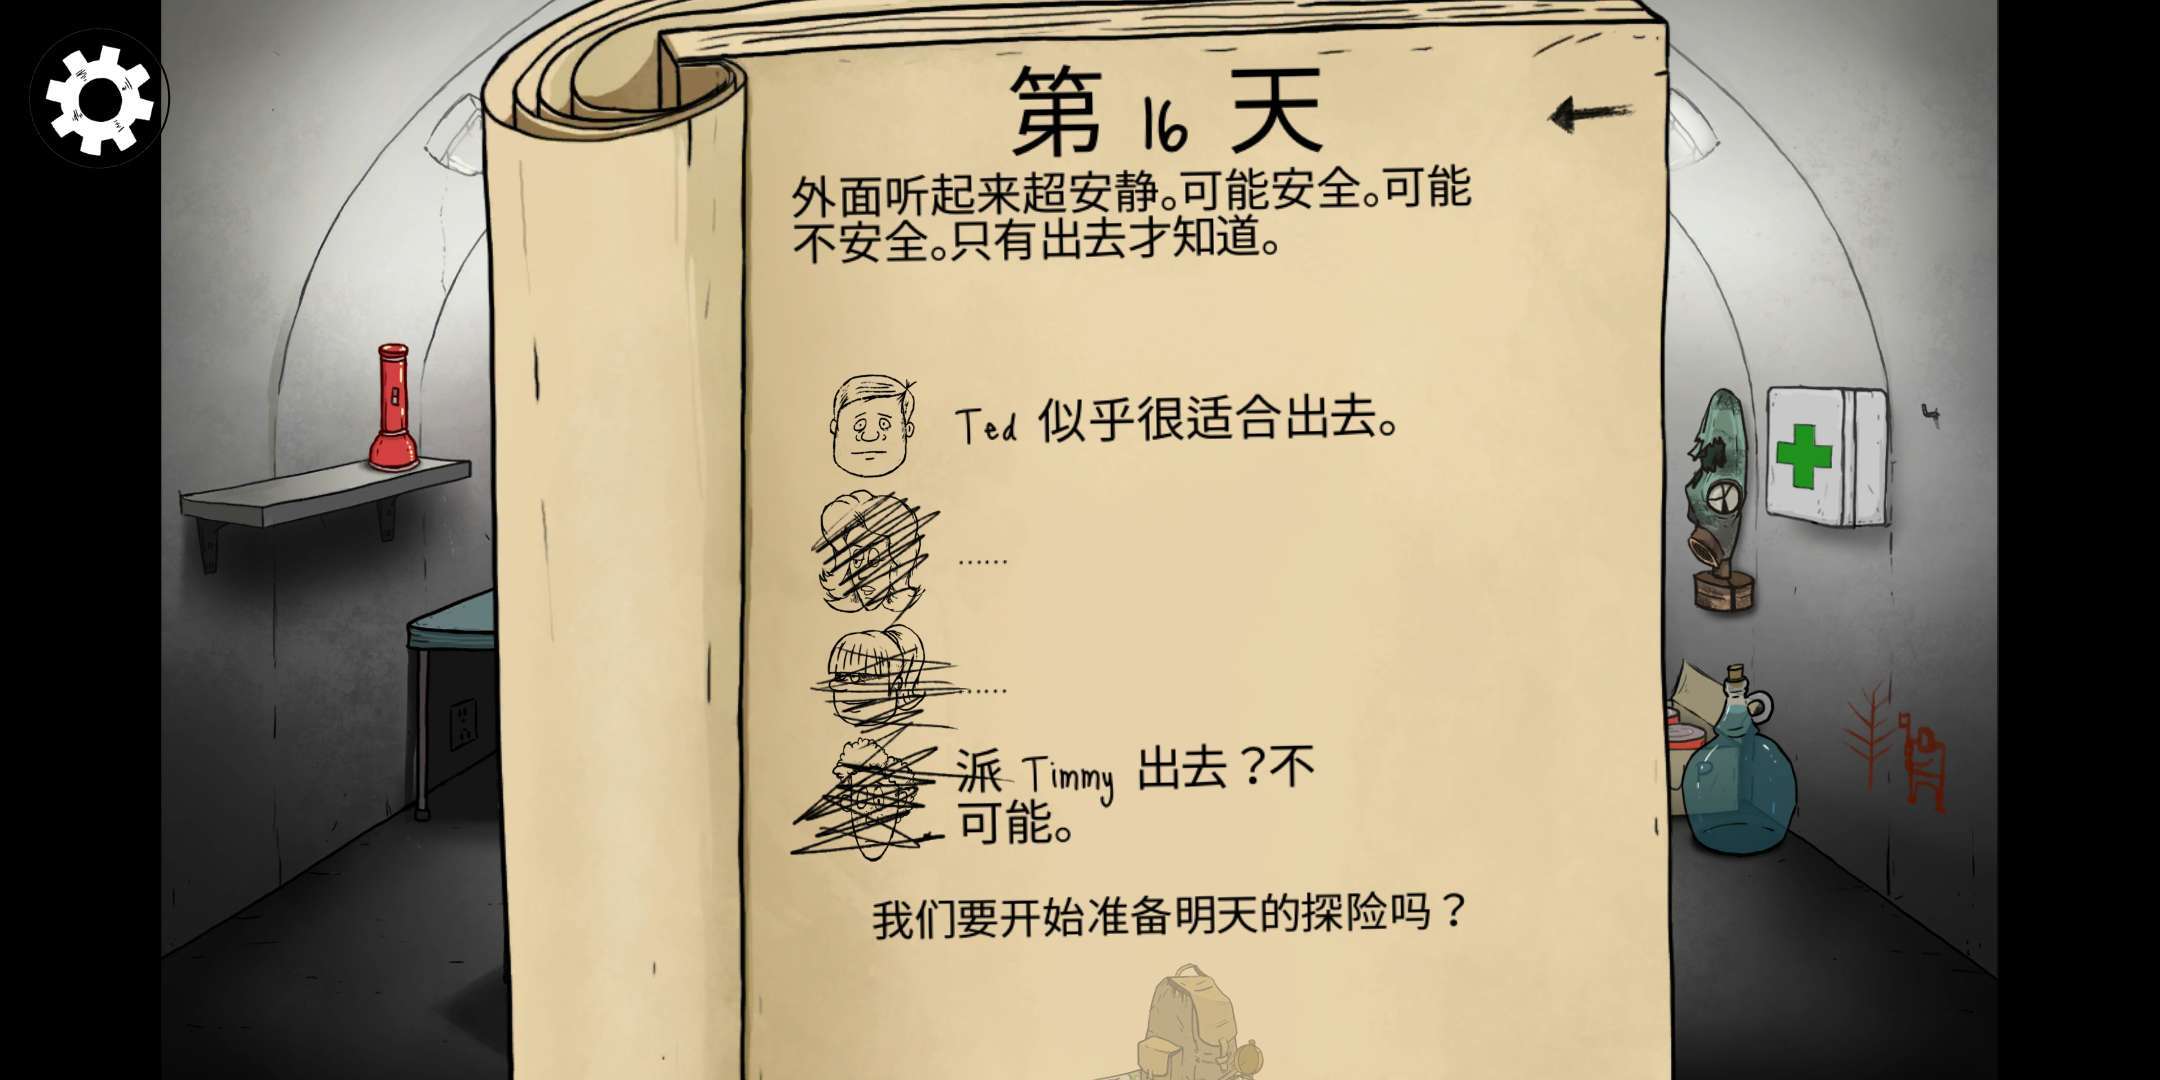 第 16 天
外面听起来超安静。可能安全。可能
不安全。只有出去才知道。
Ted 似乎很适合出去。
......
......
派 Timmy 出去？不
可能。
我们要开始准备明天的探险吗？